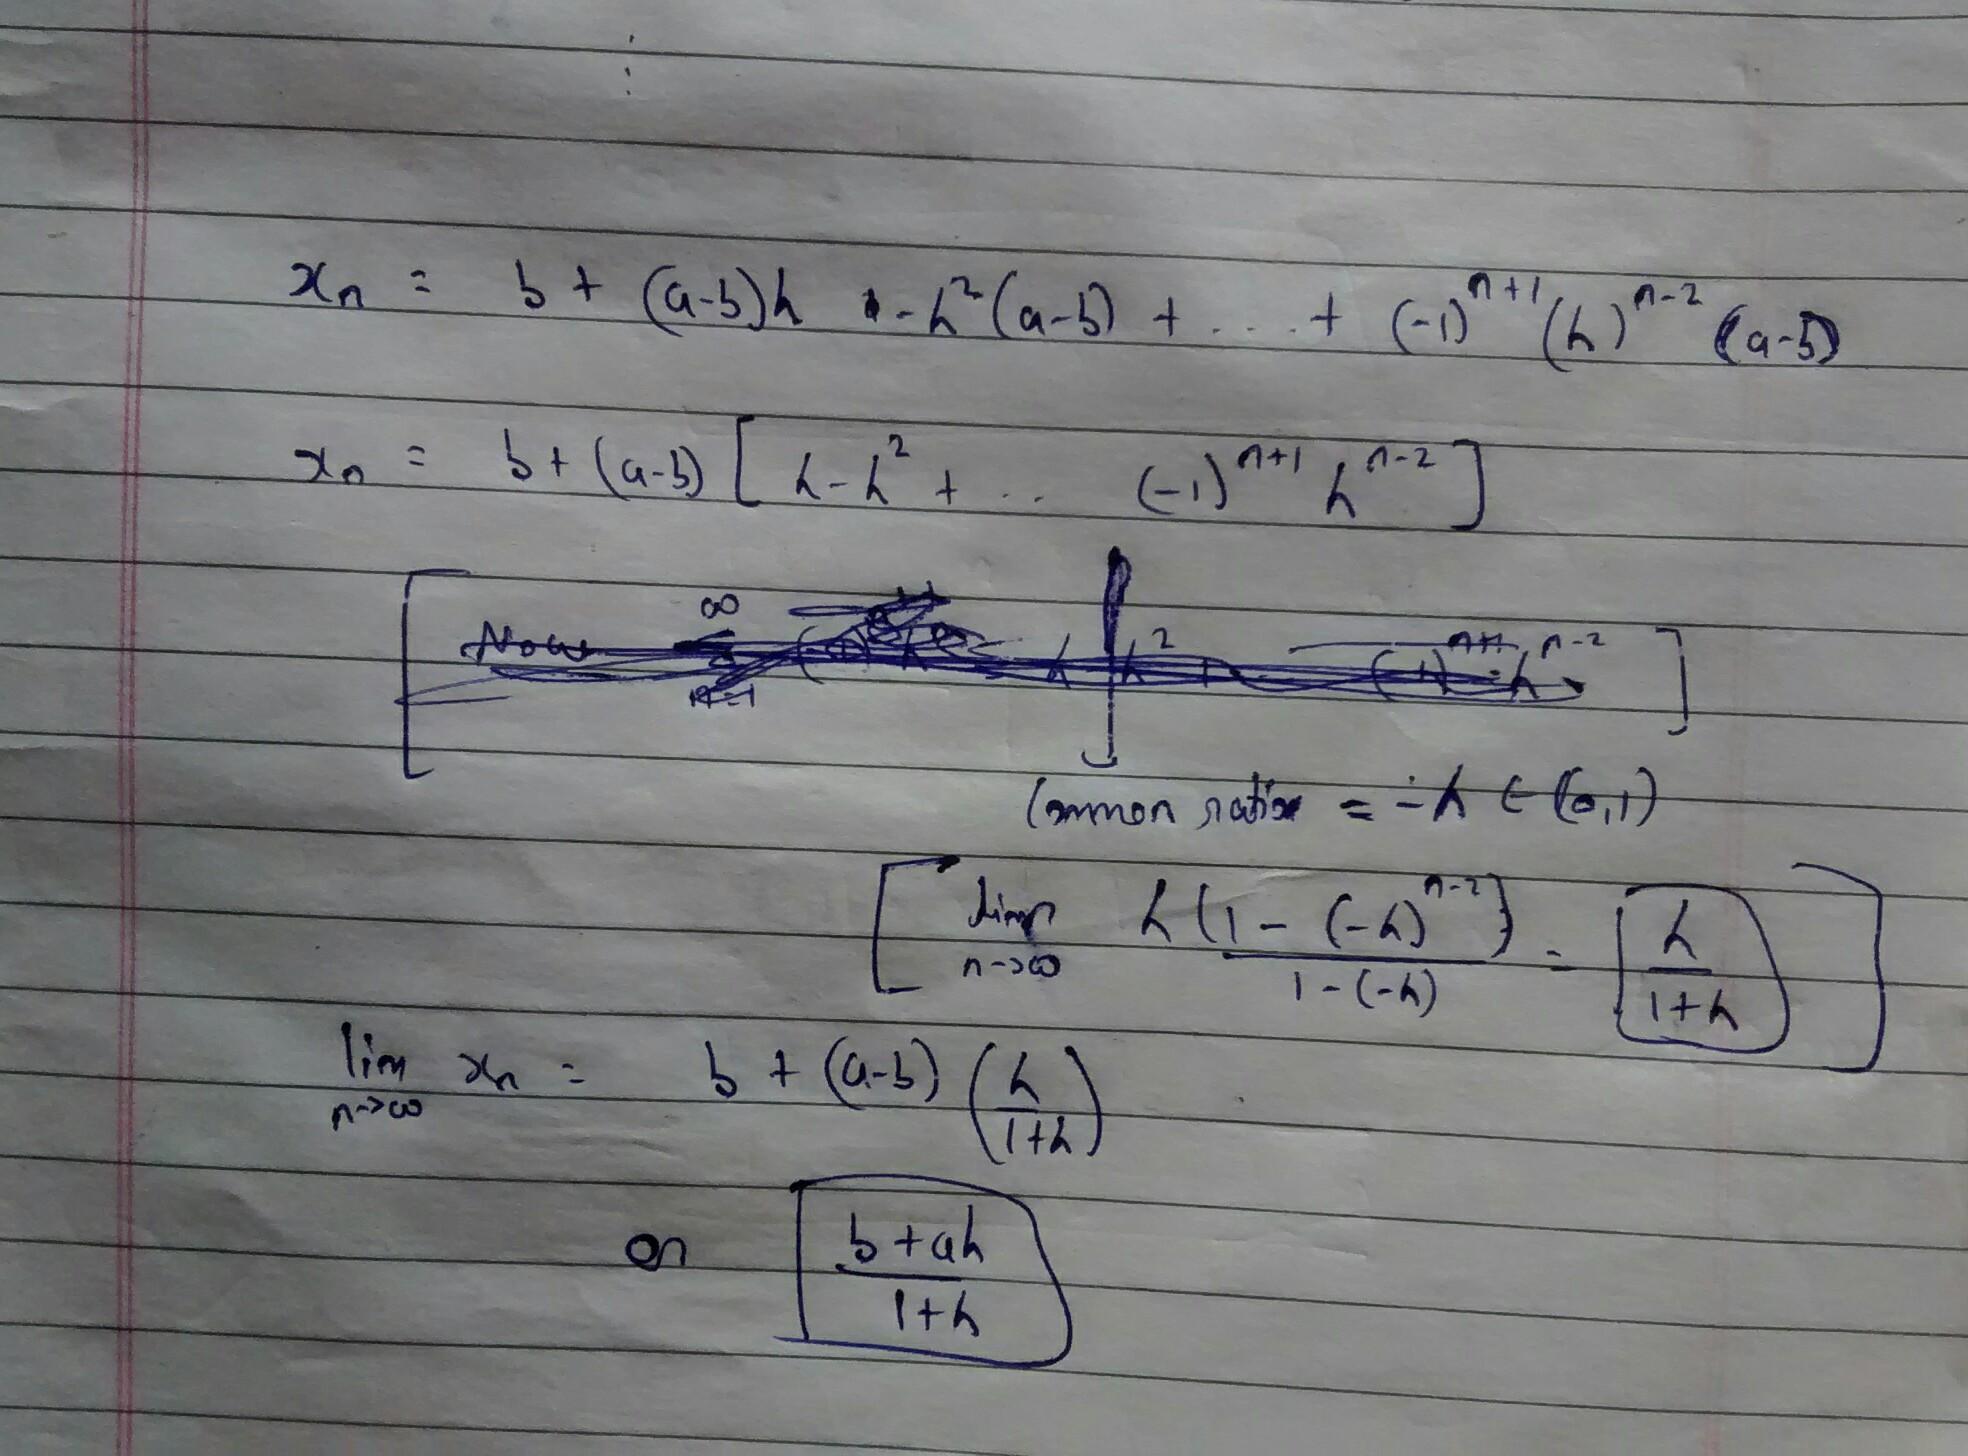 xₙ = b + (a-b)h - h²(a-b) + ... + (-1)ⁿ⁺¹(h)ⁿ⁻²(a-b)
xₙ = b + (a-b) [ h - h² + .. (-1)ⁿ⁺¹ hⁿ⁻² ]
Common ratio = -h ∈ (0,1)
[ lim n->∞ h(1 - (-h)ⁿ⁻²) / 1-(-h) = h / 1+h ]
lim n->∞ xₙ = b + (a-b) (h / 1+h)
or b+ah / 1+h